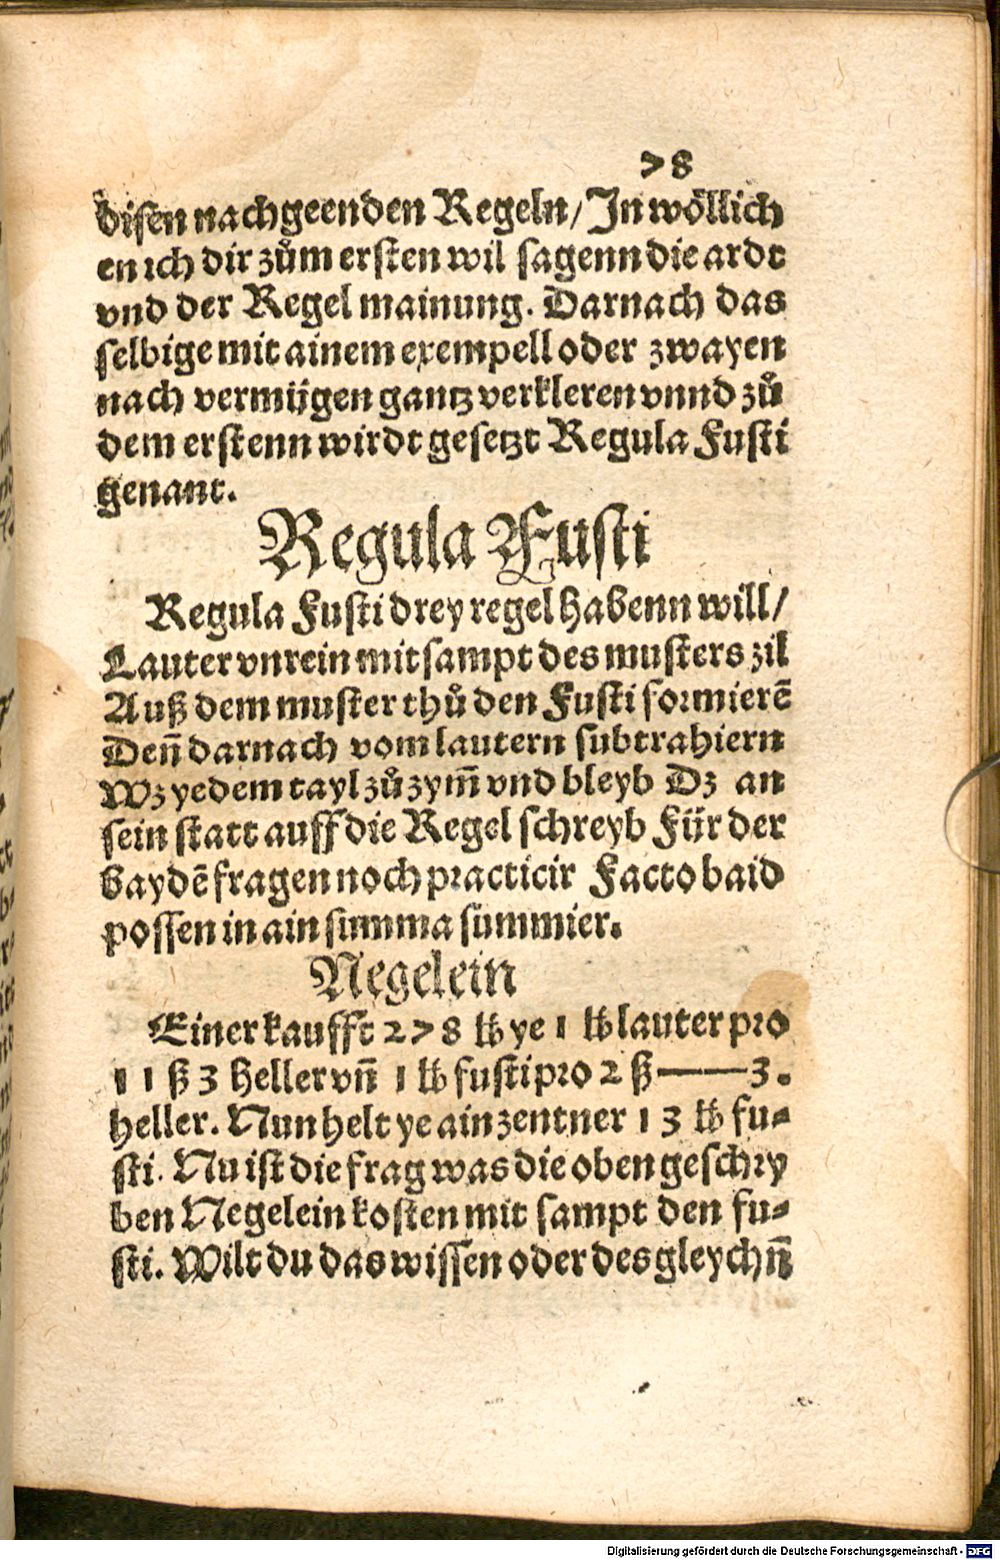 78
disen nachgeenden Regeln/ Jn wöllich
en ich dir zům ersten wil sagenn die ardt
vnd der Regel mainung. Darnach das
selbige mit ainem exempell oder zwayen
nach vermügen gantz verkleren vnnd zů
dem erstenn wirdt gesetzt Regula Fusti
genant.
Regula Fusti
Regula Fusti drey regel habenn will/
Lauter vnrein mit sampt des musters zil
Auß dem muster thů den Fusti formierē
Deñ darnach vom lautern subtrahiern
Wz yedem tayl zů zym̄ vnd bleyb Dz an
sein statt auff die Regel schreyb Für der
baydē fragen noch practicir Facto baid
possen in ain summa summier.
Negelein
Einer kaufft 278 ℔ ye 1 ℔ lauter pro
11 ß 3 heller vñ 1 ℔ fusti pro 2 ß——3.
heller. Nun helt ye ain zentner 13 ℔ fu-
sti. Nu ist die frag was die oben geschry
ben Negelein kosten mit sampt den fu-
sti. Wilt du das wissen oder des gleychñ
Digitalisierung gefördert durch die Deutsche Forschungsgemeinschaft - DFG